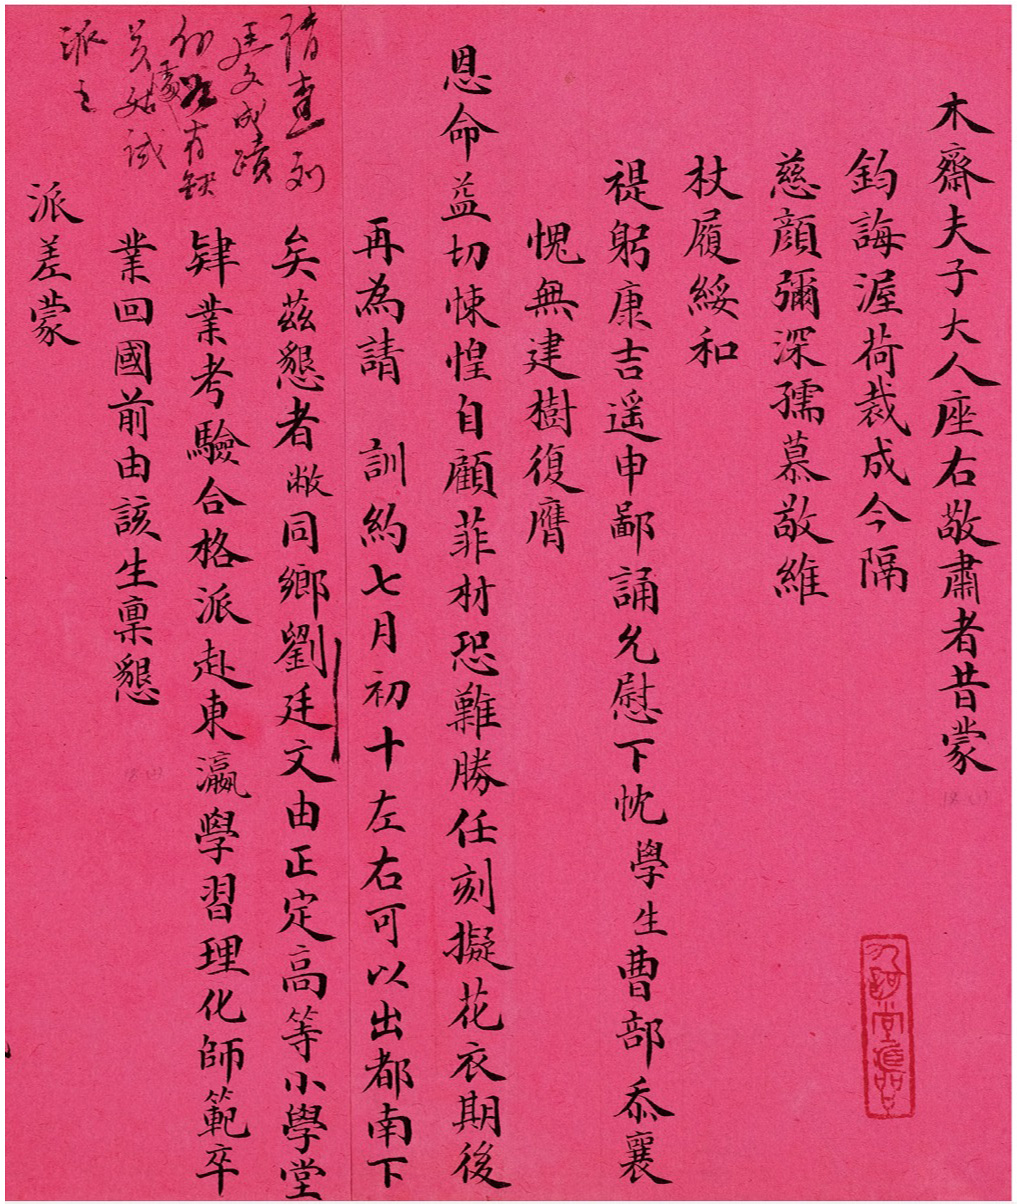 木齋夫子大人座右敬肅者昔蒙
鈞誨渥荷裁成今隔
慈顏彌深孺慕敬維
杖履綏和
禔躬康吉遥申鄙誦允慰下忱學生曹部忝襄
愧無建樹復膺
恩命益切悚惶自顧菲材恐難勝任刻擬花衣期後
再為請　訓約七月初十左右可以出都南下
矣茲懇者敝同鄉劉廷文由正定高等小學堂
肄業考驗合格派赴東瀛學習理化師範卒
業回國前由該生稟懇
派差蒙
請查劉
廷文成蹟
何如有缺
派之